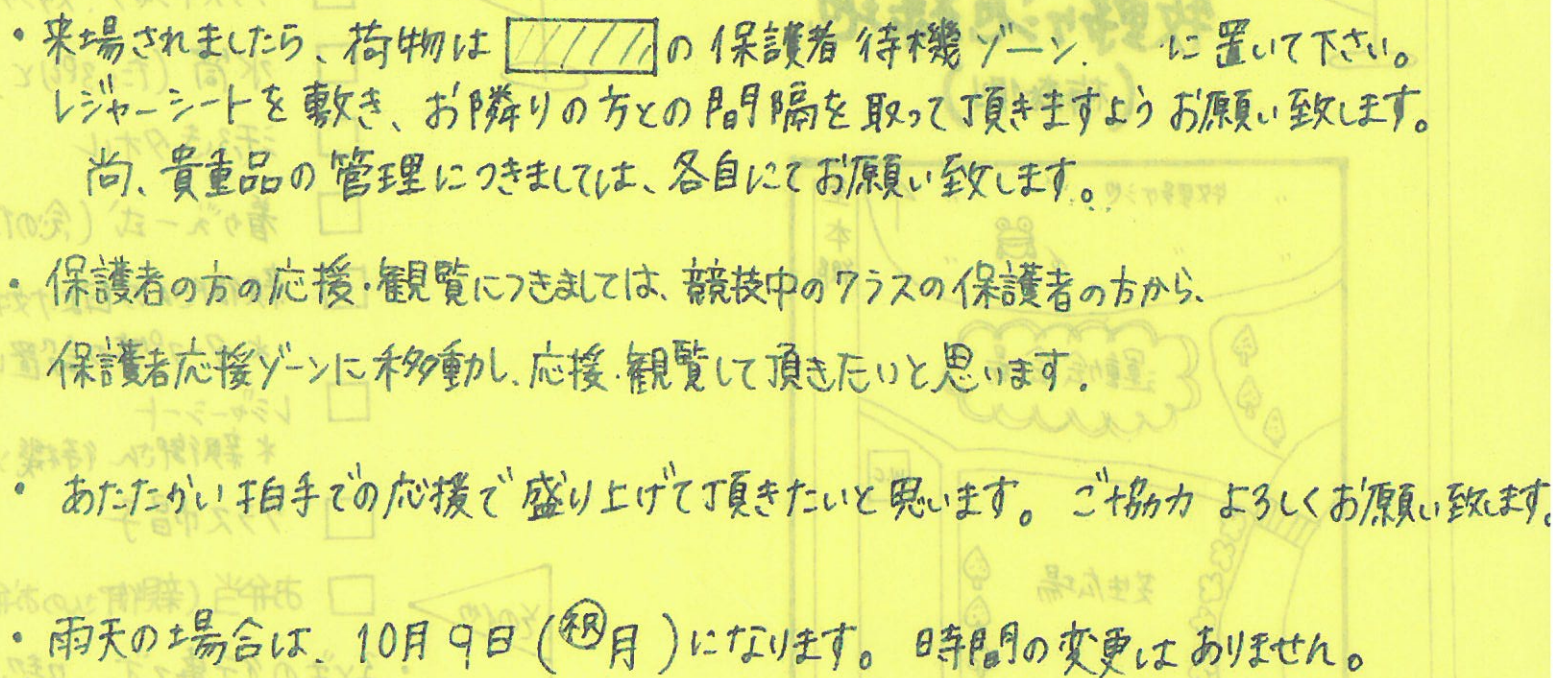 ・来場されましたら、荷物は の保護者待機ゾーン. に置いて下さい。
レジャーシートを敷き、お隣りの方との間隔を取って頂きますようお願い致します。
尚、貴重品の管理につきましては、各自にてお願い致します。
・保護者の方の応援・観覧につきましては、競技中のクラスの保護者の方から、
保護者応援ゾーンに移動し、応援・観覧して頂きたいと思います。
・あたたかい拍手での応援で盛り上げて頂きたいと思います。ご協力 よろしくお願い致します。
・雨天の場合は、10月9日(祝月)になります。時間の変更はありません。